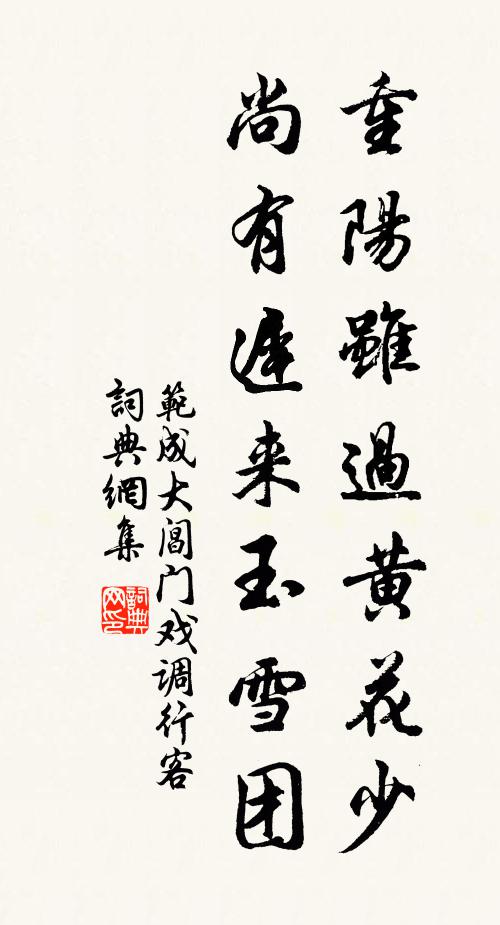 重陽雖過黄花少
尚有遲来玉雪团
範成大閶门戏调行客
詞典網集
詞典
网印